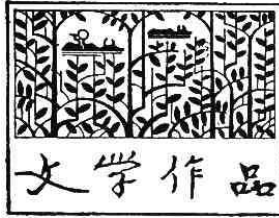 文学作品